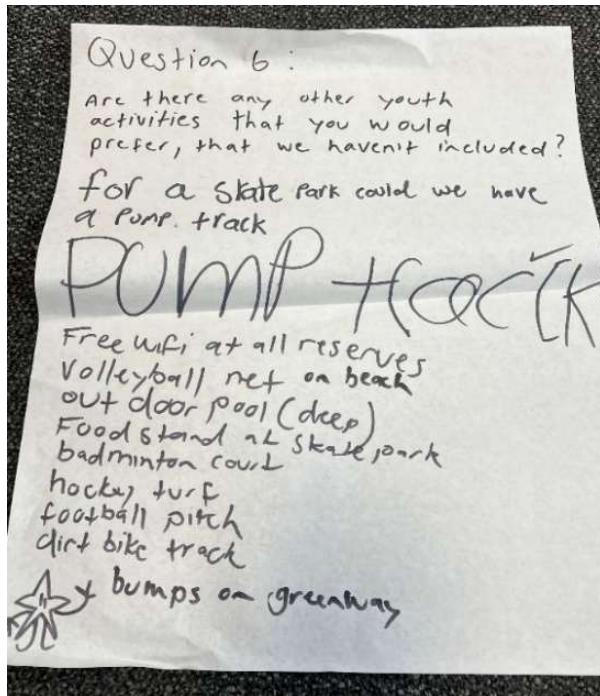 Question 6 :
Are there any other youth
activities that you would
prefer, that we haven't included?
for a skate park could we have
a pump. track
PUMP track
Free wifi at all reserves
Volleyball net on beach
out door pool (deep)
Food stand at skate park
badminton court
hocky turf
football pitch
dirt bike track
bumps on greenway